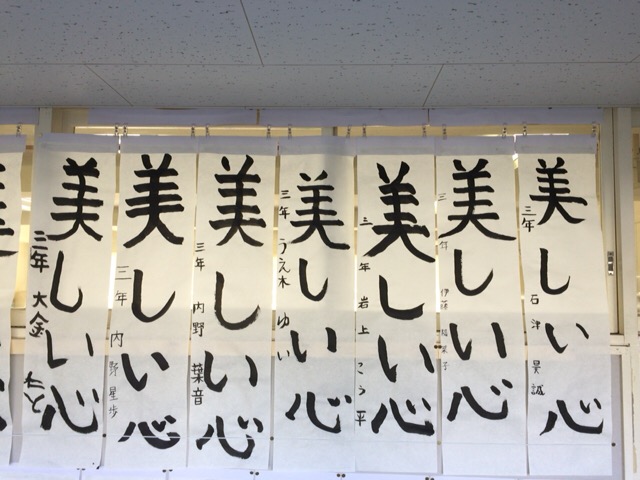 美しい心
三年 石津 昊誠
美しい心
三年 伊藤
美しい心
三年 岩上 こう平
美しい心
三年 うえ木 ゆい
美しい心
三年 内野 葉音
美しい心
三年 内野 星歩
美しい心
三年 大金